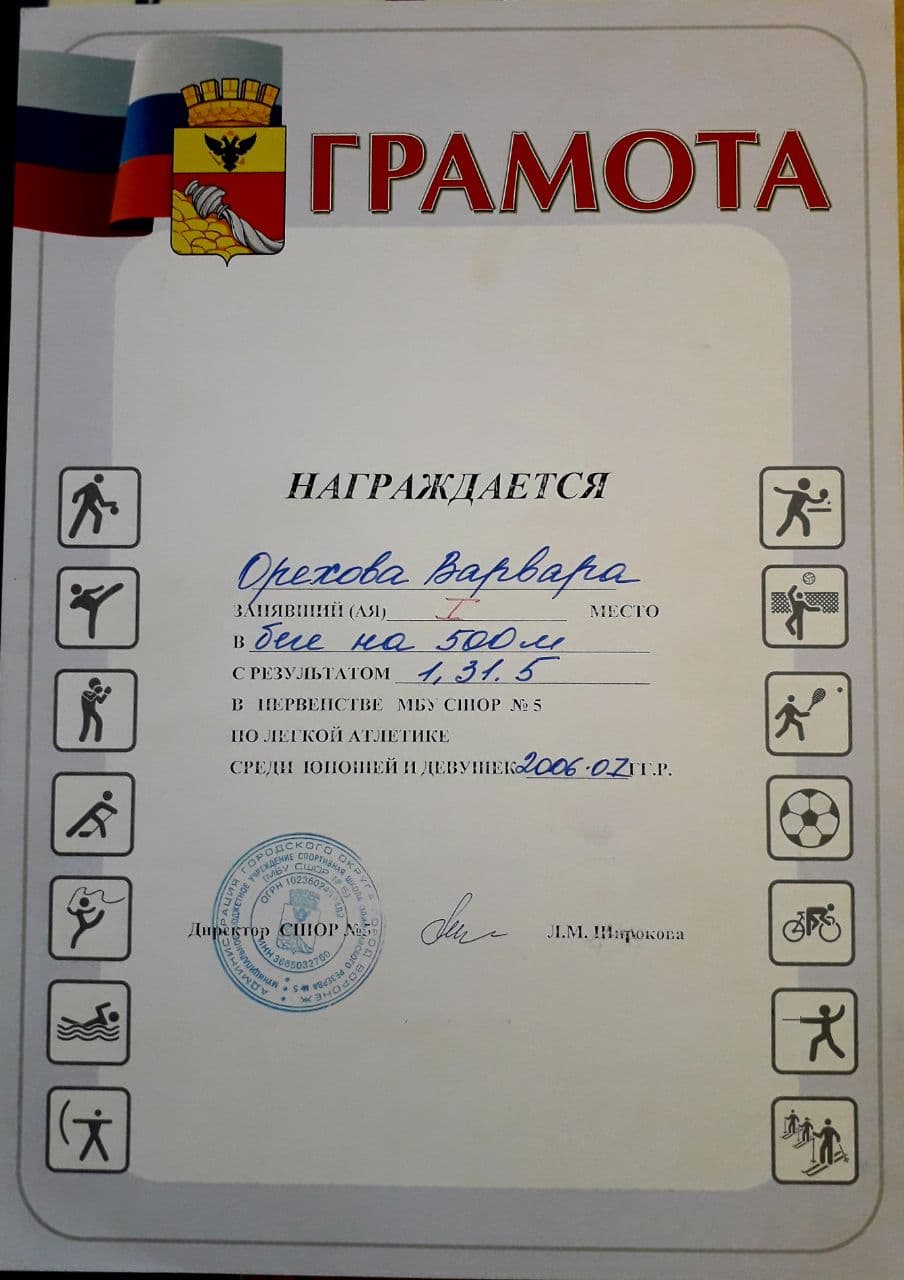 ГРАМОТА
НАГРАЖДАЕТСЯ
Орехова Варвара
ЗАНЯВШИЙ (АЯ) I МЕСТО
В беге на 500 м
С РЕЗУЛЬТАТОМ 1,31.5
В ПЕРВЕНСТВЕ МБУ СШОР № 5
ПО ЛЕГКОЙ АТЛЕТИКЕ
СРЕДИ ЮНОШЕЙ И ДЕВУШЕК 2006-07 ГГ.Р.
Директор СШОР №5 Л.М. Широкова
АДМИНИСТРАЦИЯ ГОРОДСКОГО ОКРУГА ГОРОД ВОРОНЕЖ
МУНИЦИПАЛЬНОЕ БЮДЖЕТНОЕ УЧРЕЖДЕНИЕ СПОРТИВНАЯ ШКОЛА ОЛИМПИЙСКОГО РЕЗЕРВА № 5
(МБУ СШОР № 5)
ИНН 3665032760